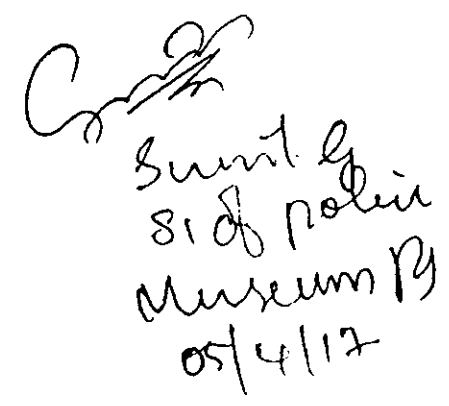 Sunil G
SI of police
Museum PS
05/4/17